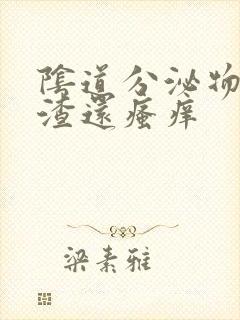 陰道分泌物
渣還瘙痒
梁素雅